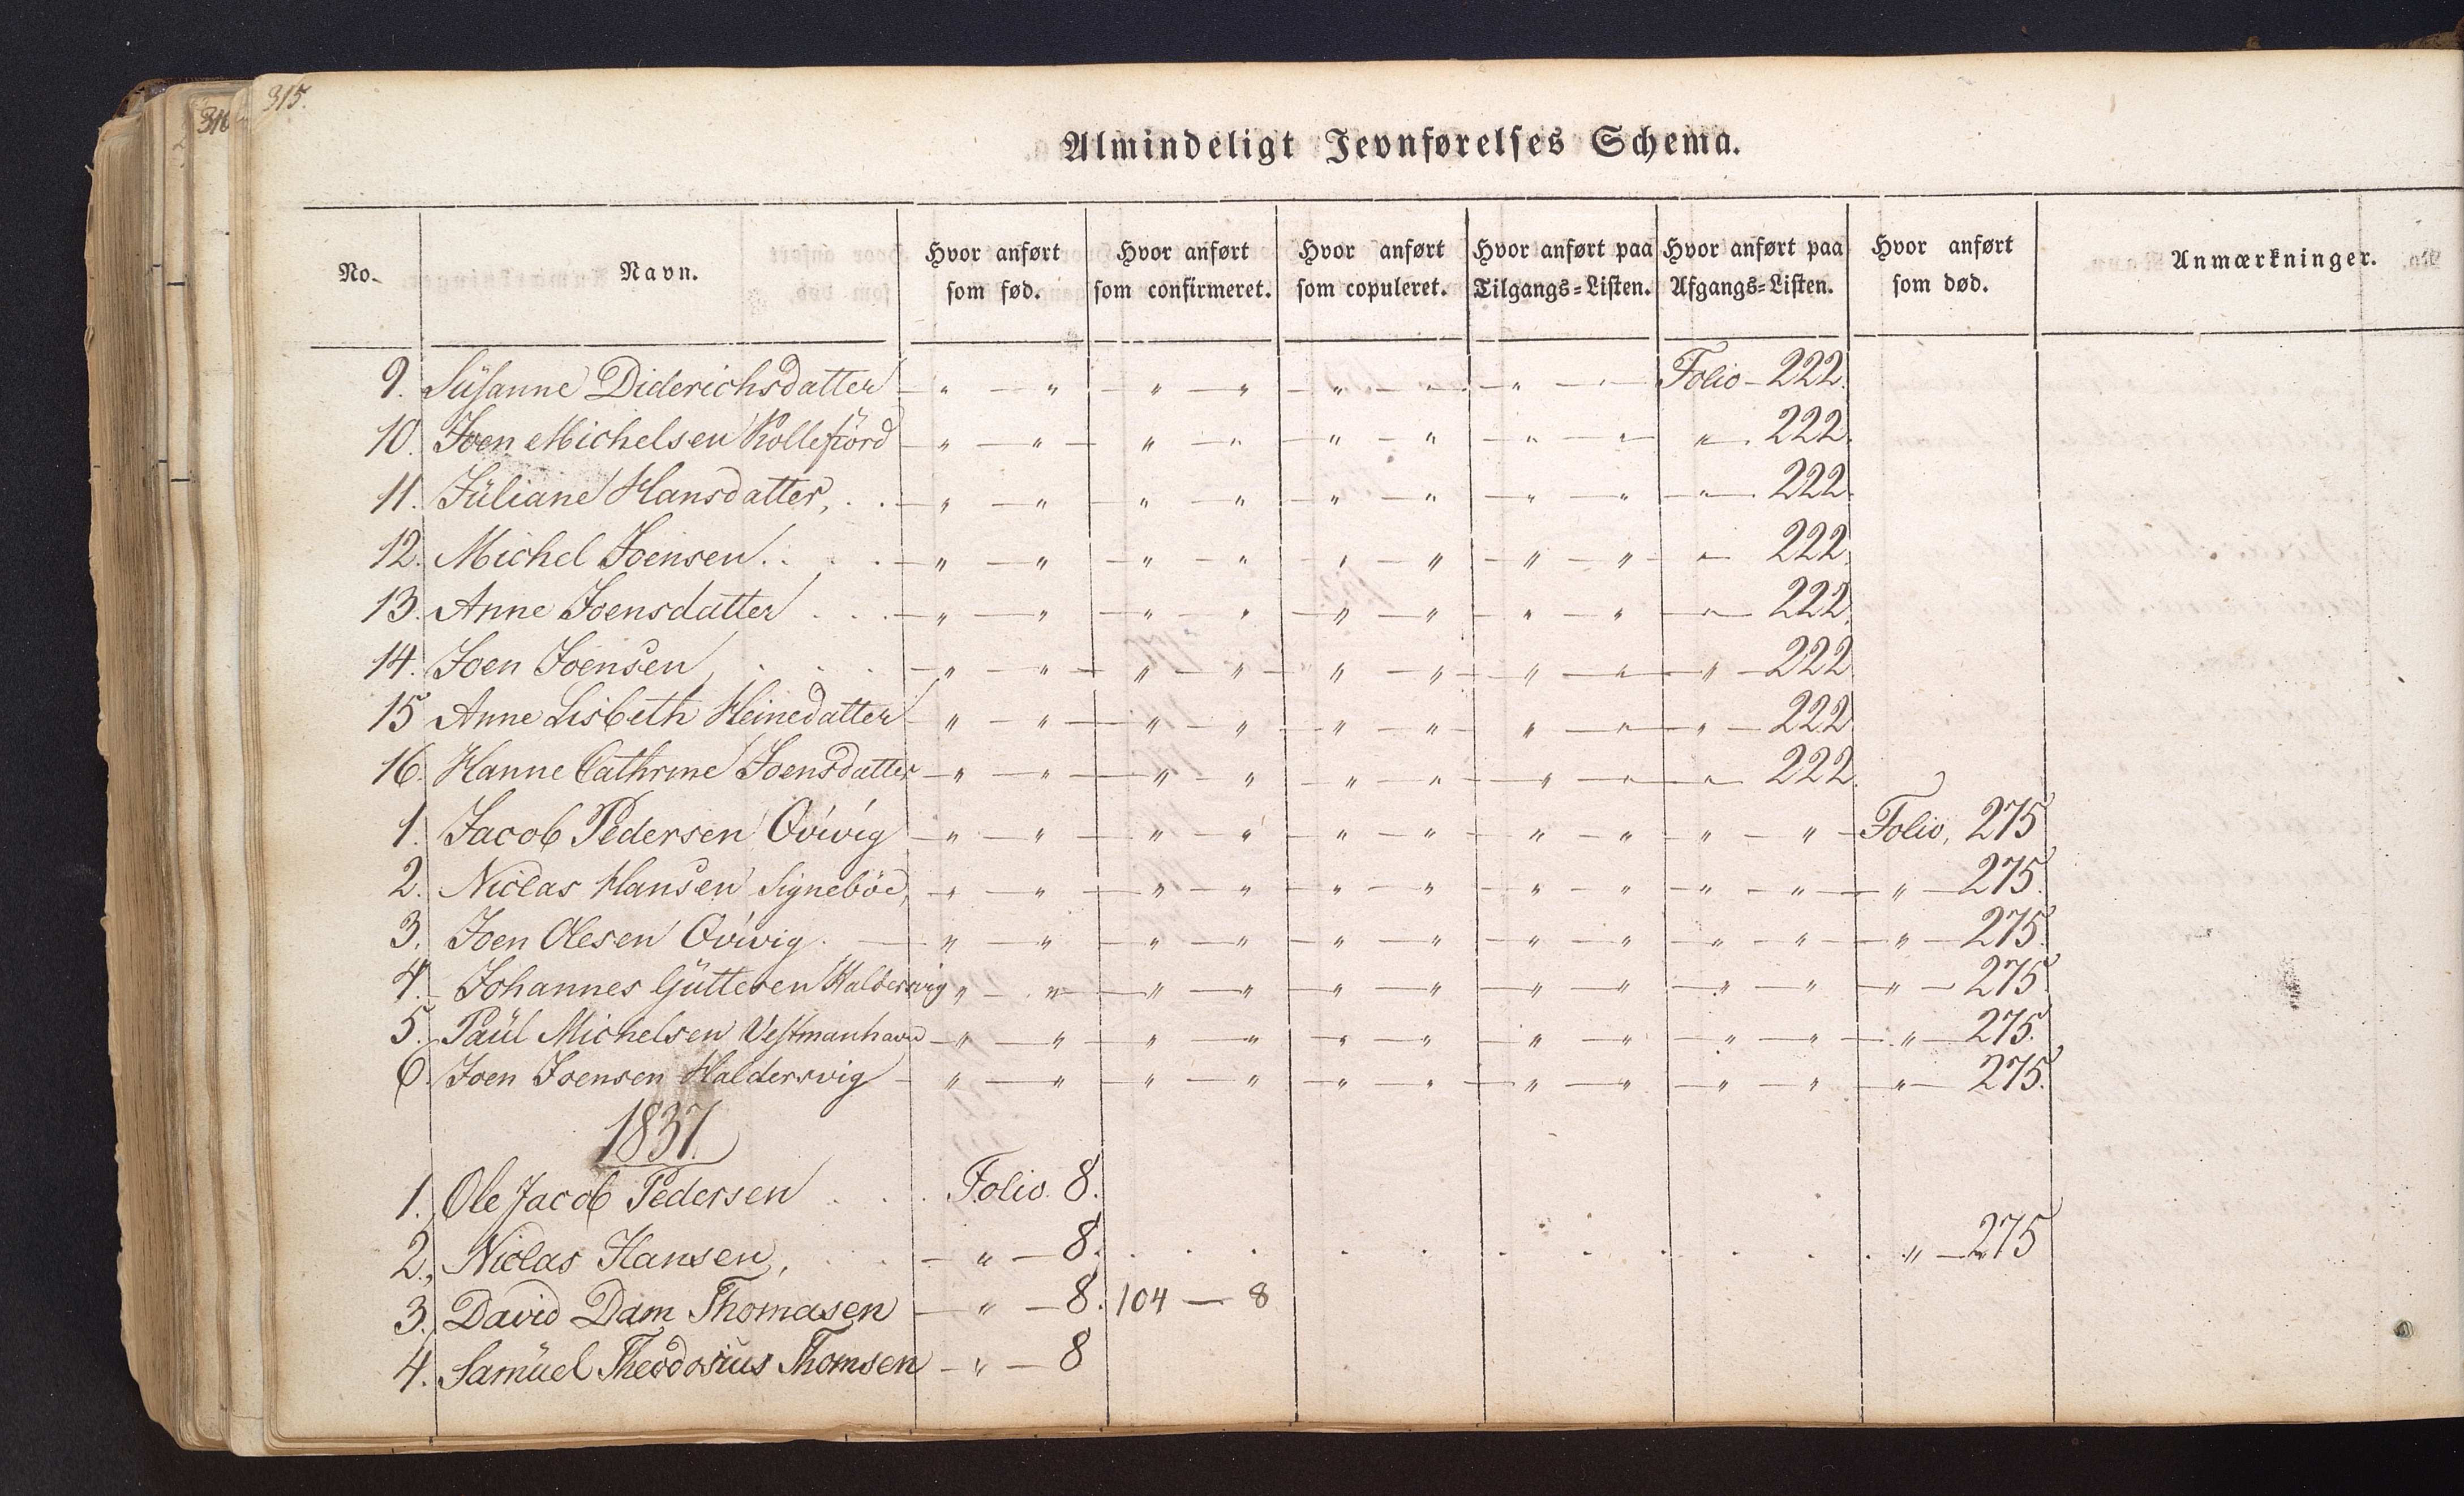 315.
316
Almindeligt Jevnførelses Schema.
No. Navn. Hvor anført som fød. Hvor anført som confirmeret. Hvor anført som copuleret. Hvor anført paa Tilgangs-Listen. Hvor anført paa Afgangs-Listen. Hvor anført som død. Anmærkninger.
9. Süsanne Diderichsdatter — " — " — " — " — " — " — " — " — Folio — 222.
10. Joen Michelsen Kollefiörd — " — " — " — " — " — " — " — " — " — 222.
11. Jüliane Hansdatter, . . — " — " — " — " — " — " — " — " — " — 222.
12. Michel Joensen . . . . — " — " — " — " — " — " — " — " — " — 222.
13. Anne Joensdatter . . . — " — " — " — " — " — " — " — " — " — 222.
14. Joen Joensen . . . — " — " — " — " — " — " — " — " — " — 222
15 Anne Lisbeth Heinedatter — " — " — " — " — " — " — " — " — " — 222
16. Hanne Cathrine Joensdatter — " — " — " — " — " — " — " — " — " — 222.
1. Jacob Pedersen Qvivig — " — " — " — " — " — " — " — " — " — " — Folio, 275
2. Niclas Hansen Signeböe, — " — " — " — " — " — " — " — " — " — " — " — 275.
3. Joen Olesen Qvivig. — " — " — " — " — " — " — " — " — " — " — " — 275.
4. Johannes Gütteren Haldersvig " — " — " — " — " — " — " — " — " — " — " — 275.
5. Paül Michelsen Vestmanhavn — " — " — " — " — " — " — " — " — " — " — " — 275.
6. Joen Joensen Haldersvig — " — " — " — " — " — " — " — " — " — " — " — 275.
1837.
1. Ole Jacob Pedersen . . . Folio. 8.
2. Niclas Hansen, . . — " — 8. . . . . . . . . . . . " — 275
3. David Dam Thomasen — " — 8. 104 — 8
4. Samüel Theodosius Thomsen — " — 8